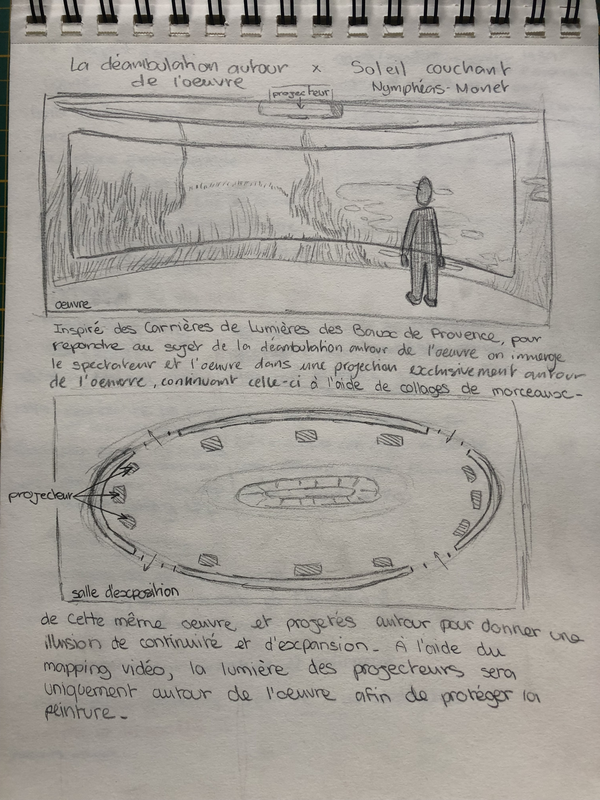 La déambulation autour x Soleil couchant
de l'oeuvre Nymphéas-Monet
projecteur
oeuvre
Inspiré des Carrières de Lumières des Baux de Provence, pour
répondre au sujet de la déambulation autour de l'oeuvre on immerge
le spectateur et l'oeuvre dans une projection exclusivement autour
de l'oeuvre, continuant celle-ci à l'aide de collages de morceaux-
projecteur
salle d'exposition
de cette même oeuvre et projetés autour pour donner une
illusion de continuité et d'expansion. À l'aide du
mapping vidéo, la lumière des projecteurs sera
uniquement autour de l'oeuvre afin de protéger la
peinture.